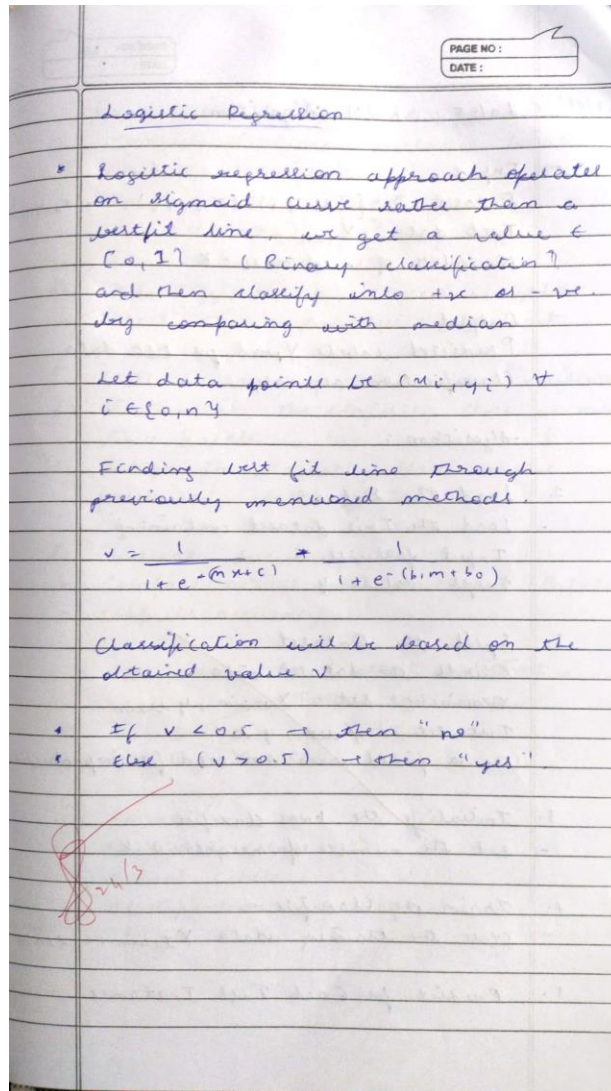 PAGE NO :
DATE :
Logistic Regression
* Logistic regression approach operates
on sigmoid curve rather than a
bestfit line, we get a value ∈
[0, 1] (Binary classification)
and then classify into +ve or -ve
by comparing with median
Let data points be (xi, yi) ∀
i ∈ {0, n}
Finding best fit line through
previously mentioned methods.
v = 1 / (1 + e^-(mx+c)) * 1 / (1 + e^-(b1m + b0))
Classification will be based on the
obtained value v
* If v < 0.5 → then "no"
* Else (v > 0.5) → then "yes".
24/3